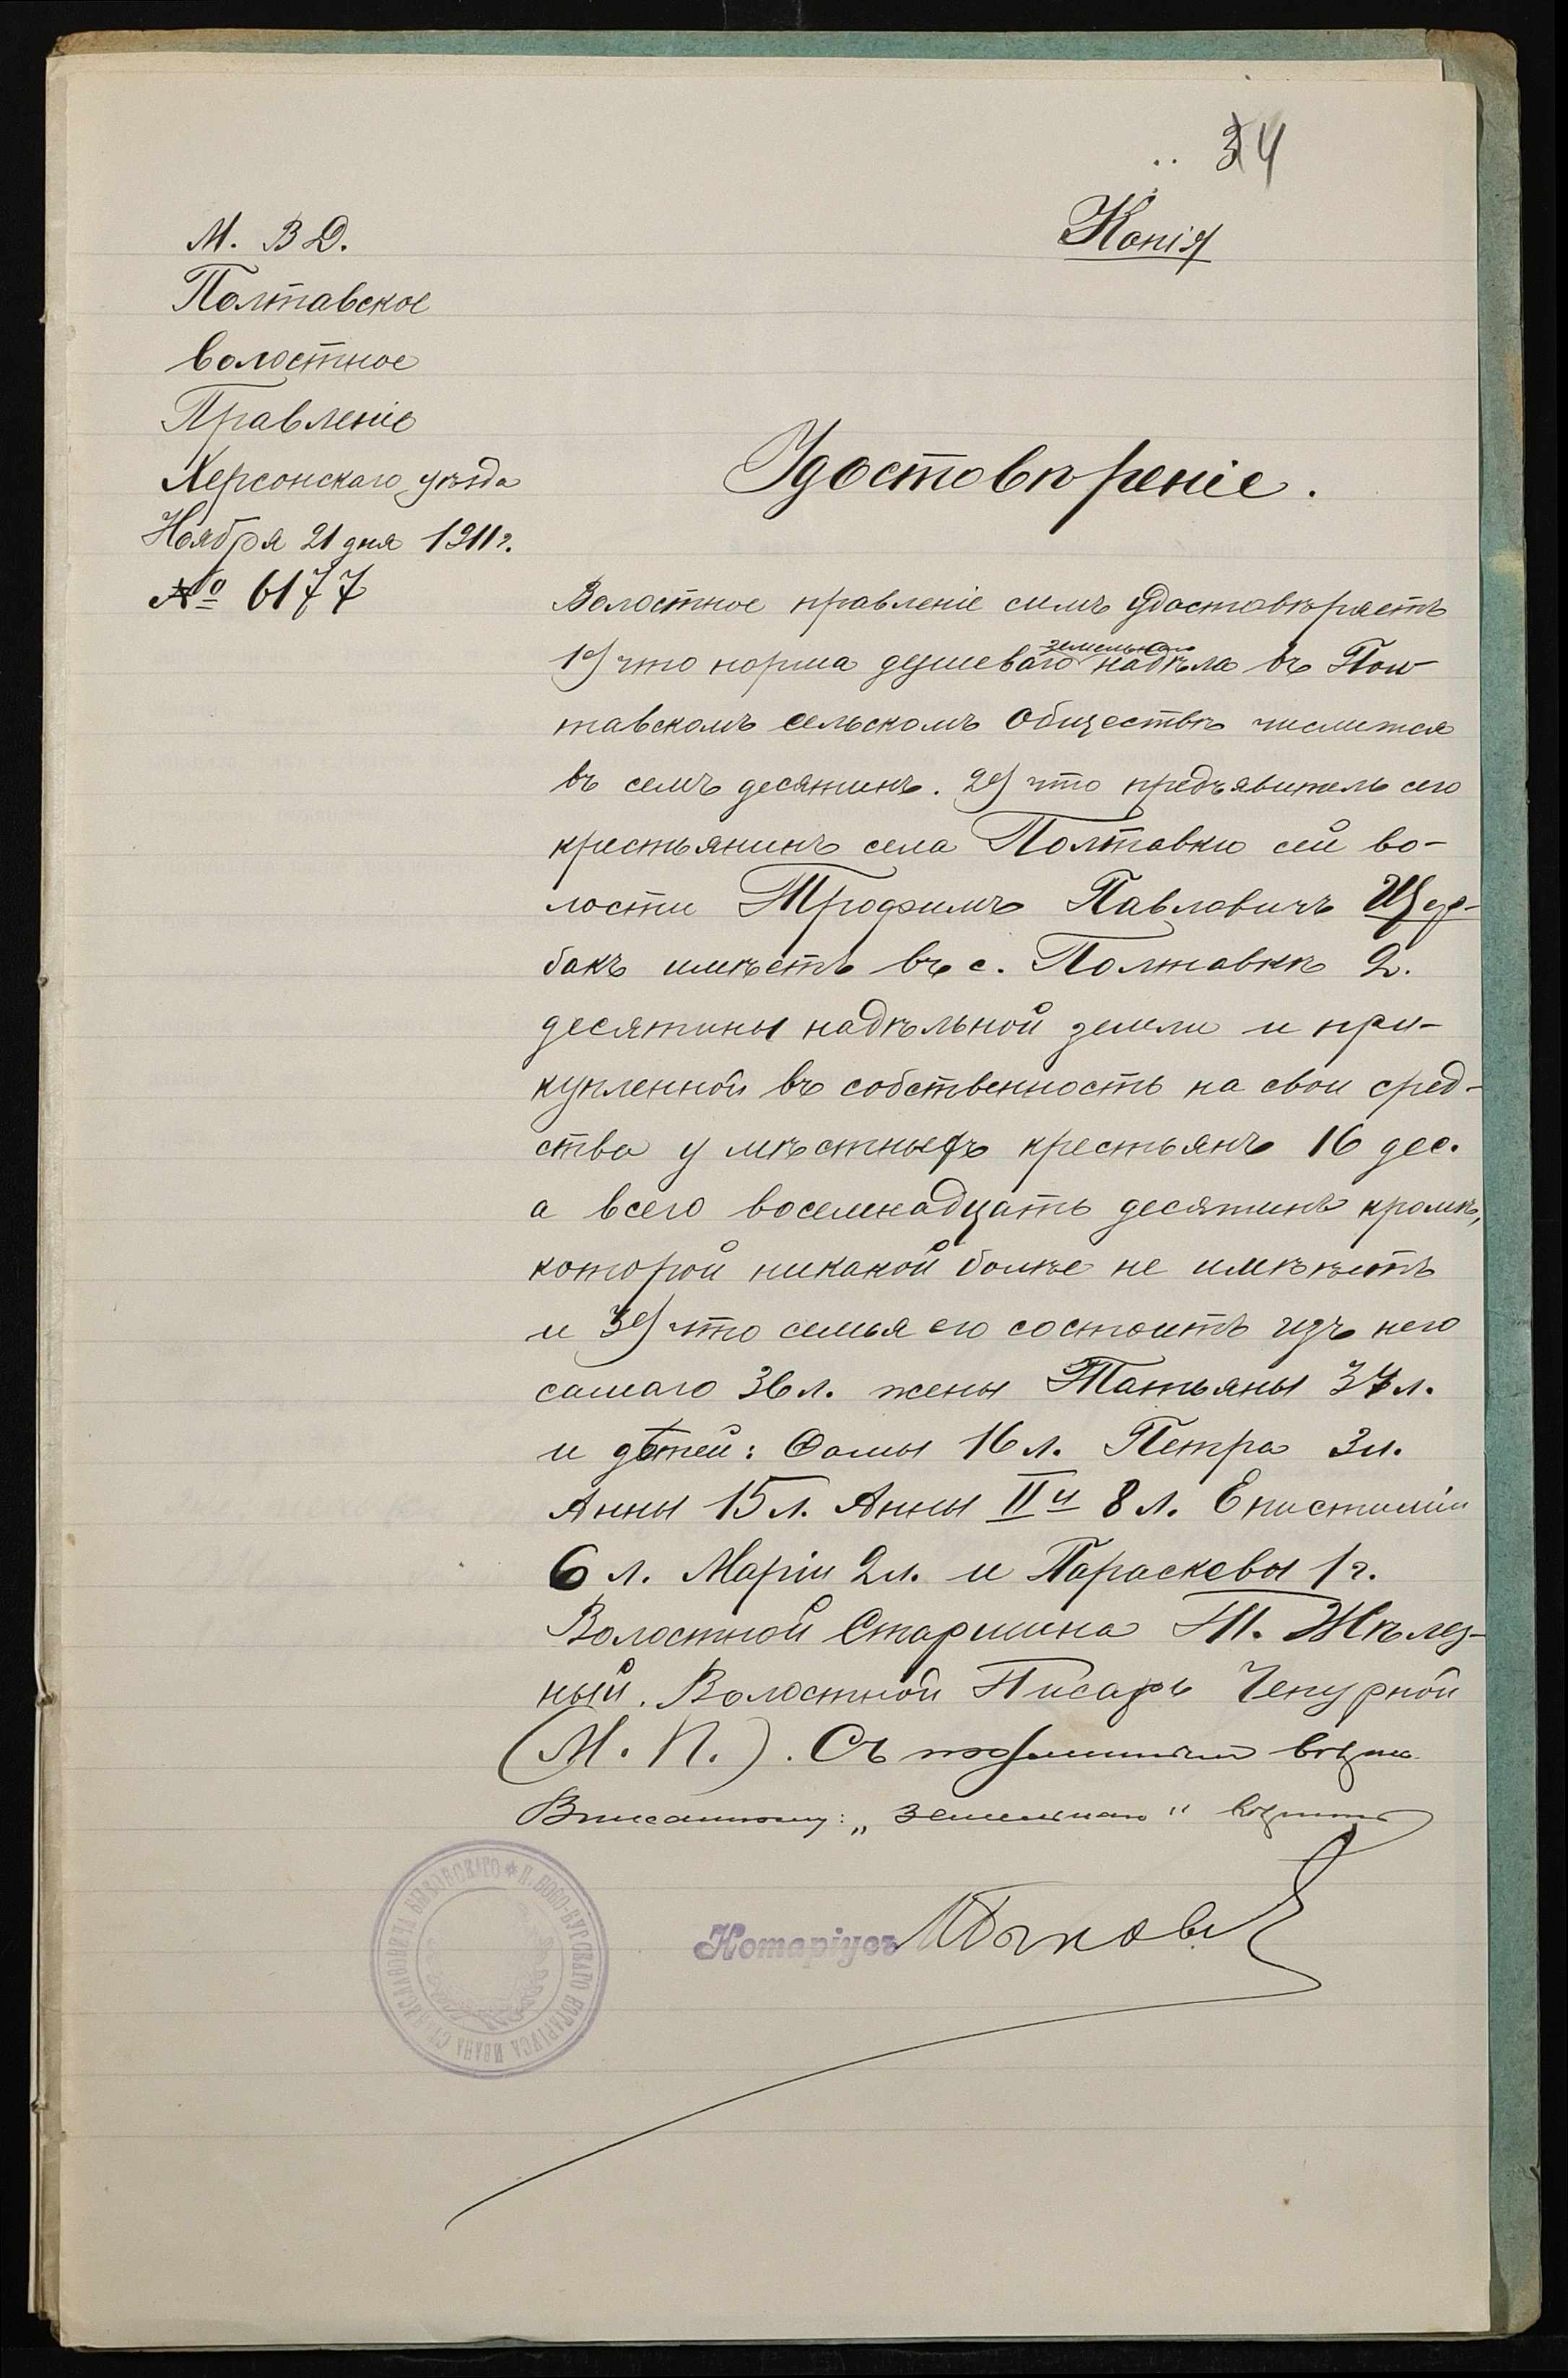 34
Копія
М. В Д.
Полтавское
волостное
Правленіе
Херсонскаго уѣзда
Ноября 21 дня 1911 г.
№ 6177
Удостовѣреніе.
Волостное правленіе симъ удостовѣряетъ
1е) что норма душеваго земельнаго надѣла въ Пол-
тавскомъ сельскомъ Обществѣ числится
въ семъ десятинъ. 2е) что предъявитель сего
крестьянинъ села Полтавки сей во-
лости Трофимъ Павловичъ Щер-
бакъ имѣетъ въ с. Полтавкѣ 2.
десятины надѣльной земли и при-
купленной въ собственность на свои сред-
ства у мѣстныхъ крестьянъ 16 дес.
а всего восемнадцать десятинъ кромѣ,
которой никакой болѣе не имѣетъ
и 3е) что семья его состоитъ изъ него
самаго 36 л. жены Татьяны 37 л.
и дѣтей: Фомы 16 л. Петра 3 л.
Анны 15 л. Анны IIй 8 л. Епистиміи
6 л. Маріи 2 л. и Параскевы 1 г.
Волостной Старшина Т. Желѣз-
ный. Волостной Писарь Чепурной
(М. П.). Съ подлиннымъ вѣрно
Вписанному: „земельнаго" вѣрить
Нотаріусъ
Н. НОВО-БУГСКАГО НОТАРІУСА ИВАНА